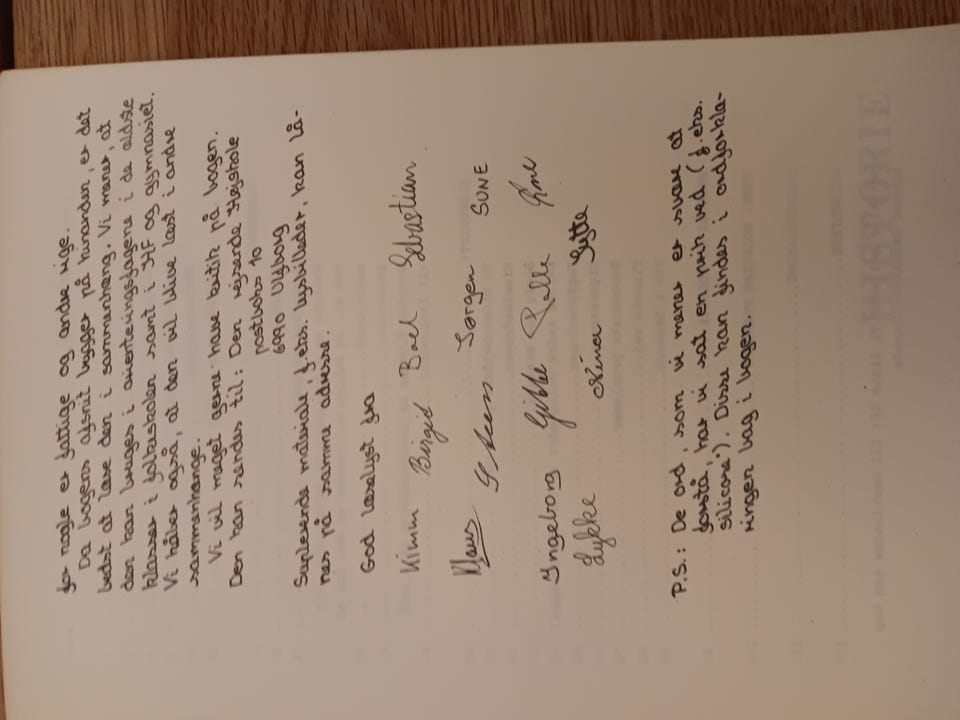 for nogle er fattige og andre rige.
Da bogens afsnit bygger på hinanden, er det
bedst at læse den i sammenhæng. Vi mener, at
den kan bruges i orienteringsfagene i de ældste
klasser i folkeskolen samt i HF og gymnasiet.
Vi håber også, at den vil blive læst i andre
sammenhænge.
Vi vil meget gerne have kritik på bogen.
Den kan sendes til: Den rejsende Højskole
postboks 10
6990 Ulfborg
Suplerende materiale, f.eks. lysbilleder, kan lå-
nes på samme adresse.
God læselyst fra
Kimm Birgid Boel Sebastian
Klaus Steen Jørgen SUNE
Ingeborg Gitte Palle Ane
Lykke Nina Jytte
P.S.: De ord, som vi mener er svære at
forstå, har vi sat en prik ved (f.eks.
silicose°). Disse kan findes i ordforkla-
ringen bag i bogen.
HISTORIE